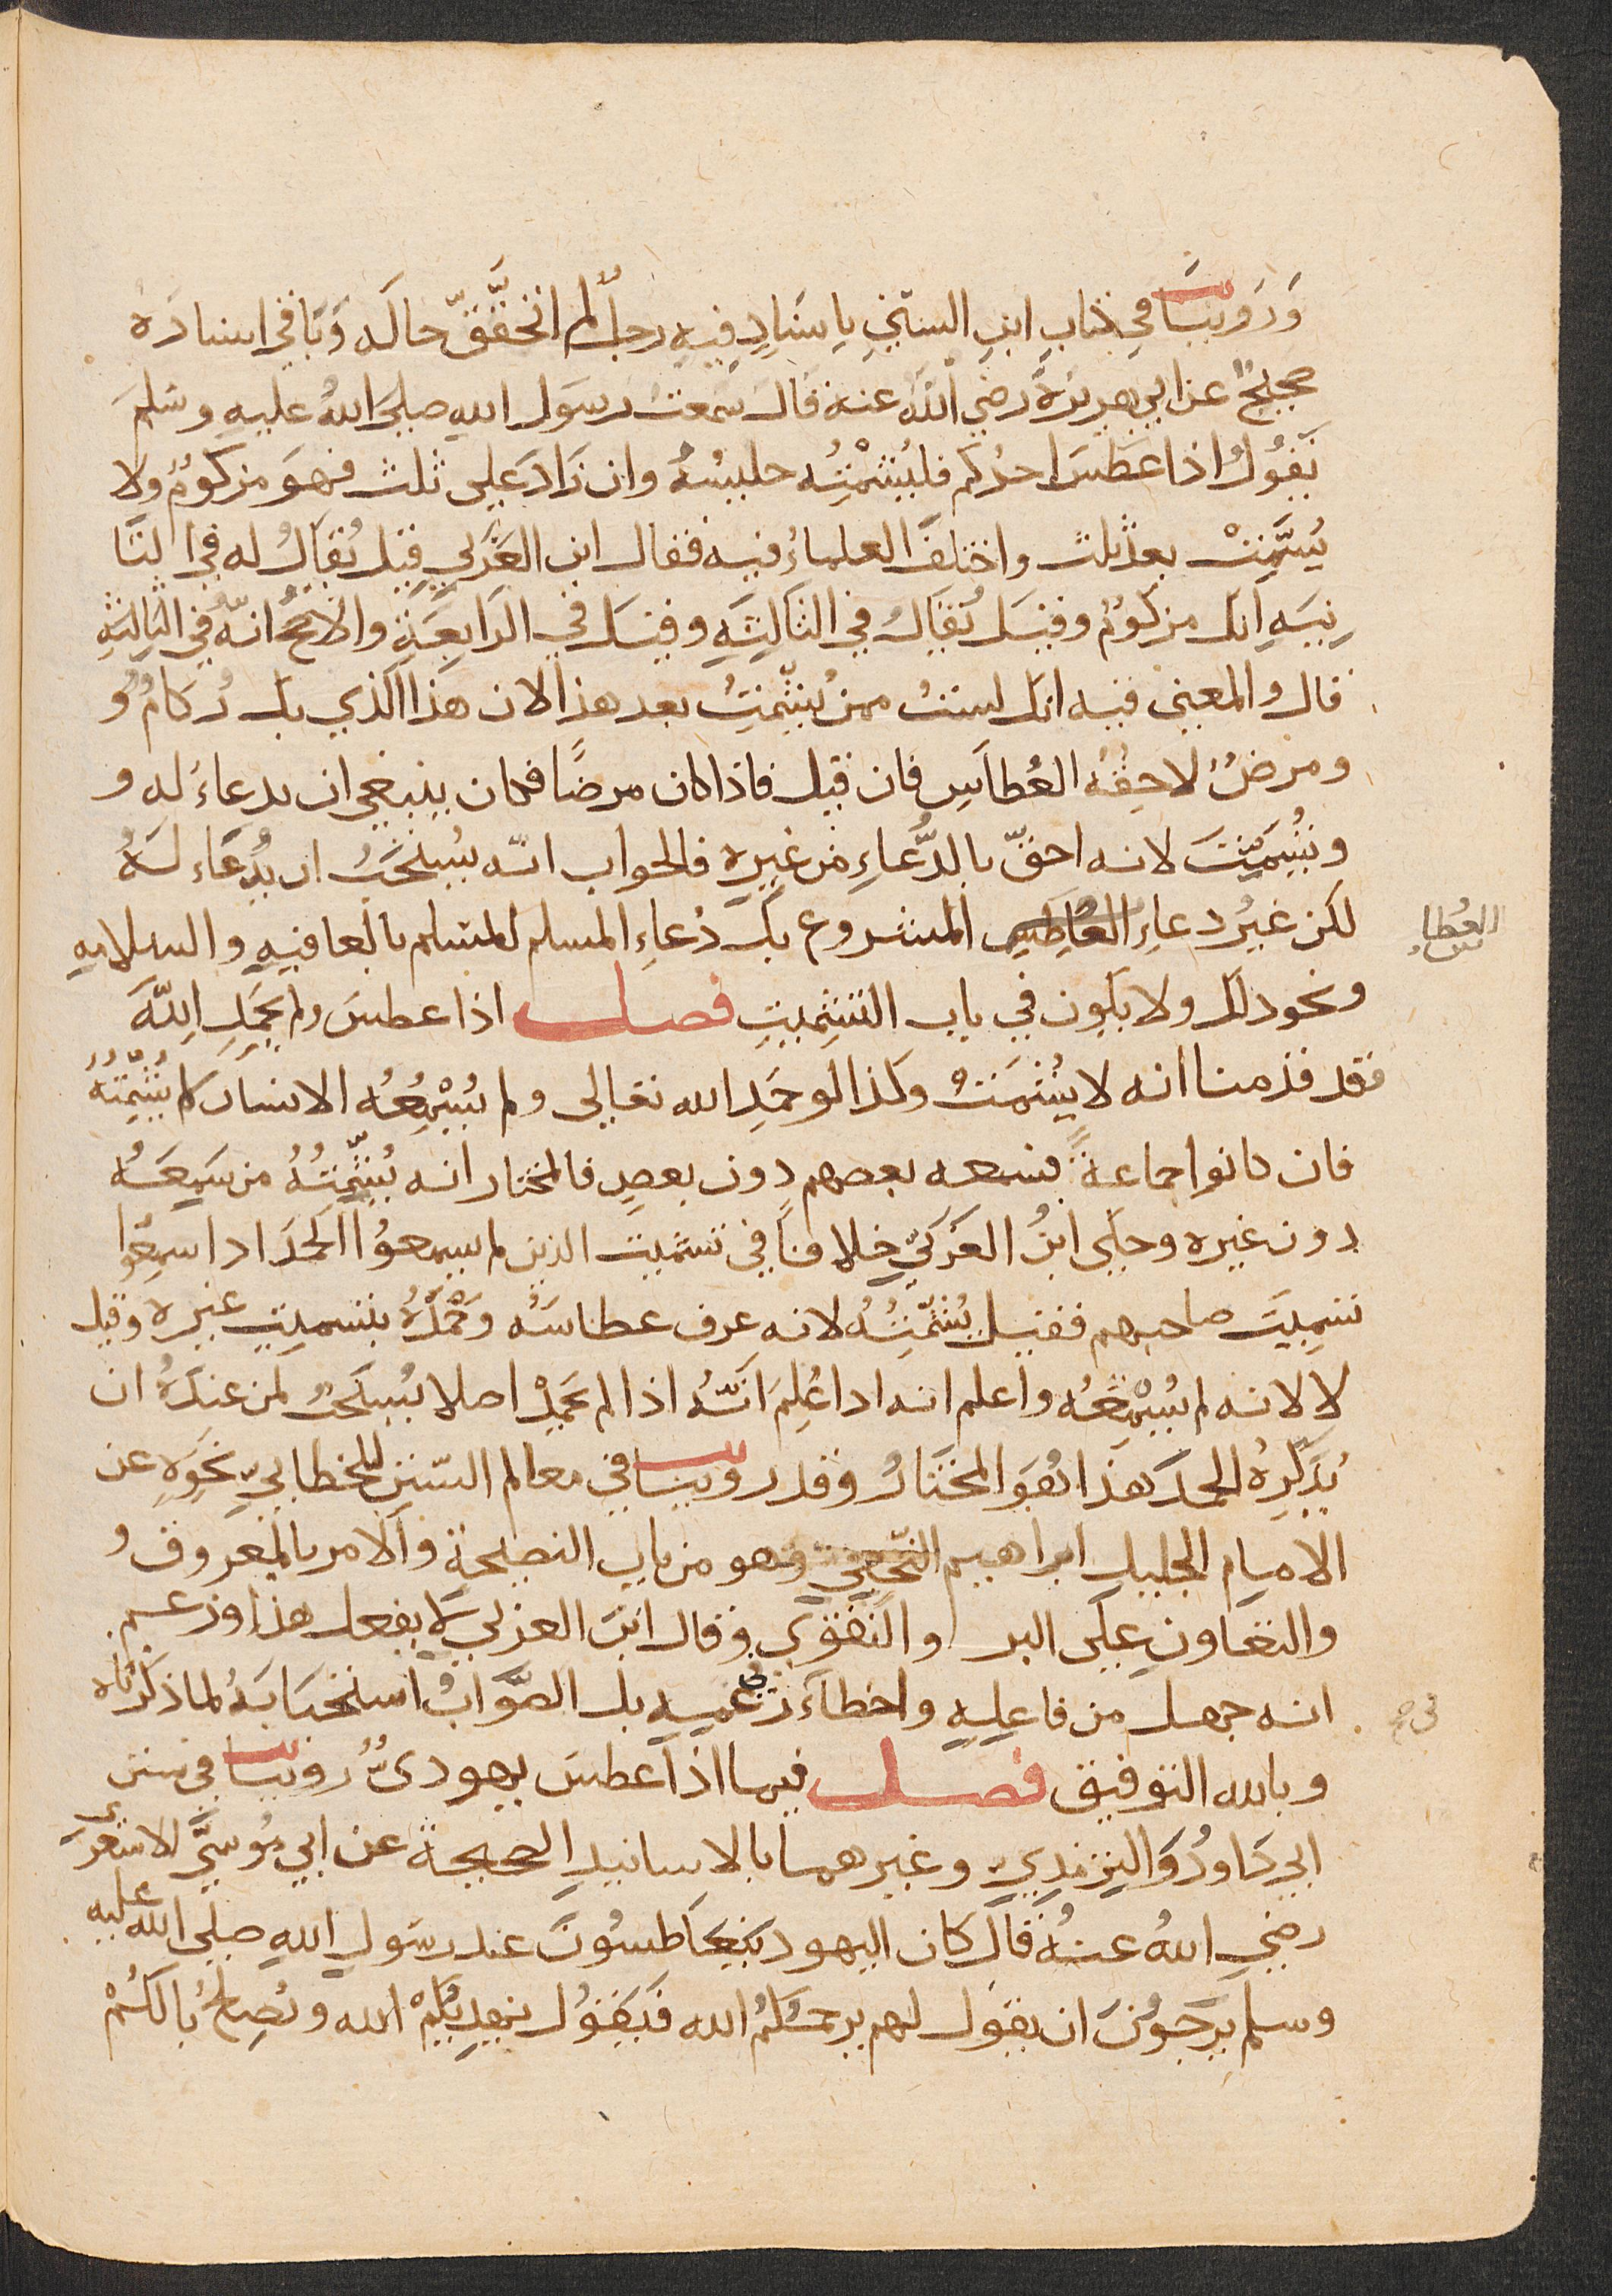 وَرَوينا في كتاب ابن السني باسنادٍ فيه رجل لم اتحقّق حاله وَباقي اسناده
صحيح عن ابي هريرة رضي الله عنه قال سَمعت رسول الله صلي الله عليه وسَلم
يَقُولُ اذا عطسَ احدُكم فليُشمّتْه جليسُهُ وان زَادَ علي ثلث فهوَ مزكومٌ ولا
يُشمّتْ بعد ثلث واختلفَ العلماءُ فيه فقال ابن العَرَبي قيل يُقالُ له في الثا
نيَه انك مزكومٌ وقيل يُقالُ في الثالثَه وقيل في الرابعَةِ والاصحُ انّه في الثالثهِ
قال والمعني فيه انك لستَ ممن يُشمّتُ بعد هذا لان هذا الذي بك زُكامٌ و
ومرضٌ لا خِفّهُ العُطاسِ فان قيل فاذا كان مرضًا فكان ينبغي ان يدعاءَ له و
ويُشمّتَ لانه احقّ بالدُّعاءِ من غيره فالجواب انّه يُستحَبُ ان يُدعَاء لهُ
لكن غيرُ دعاءِ العاطِسِ المشروع بل دُعاءِ المسلم للمسلم بالعافيهِ والسلامهِ
العُطاس
ونحو ذلك ولا يكون في باب التشميتِ فصل اذا عطسَ ولم يحمَدِ اللهَ
فقد قدمنا انه لا يُشمَتْ وكذا لو حَمِدَ الله تعالي ولم يُسْمِعْهُ الانسان لا يُشمّتُه
فان كانوا جماعةً فسمعه بعضهم دون بعض فالمختار انه يُشمّتُهُ من سَمِعَهُ
دون غيره وحكي ابنُ العَرَبيّ خلافًا في تشميت الذين لم يسمعوُا الحمَدَ اذا سمِعُوا
تشميتَ صاحبهم فقيل يُشمّتُهُ لانه عرف عطاسَهُ وحَمْدَهُ بتشميتِ غيره وقيل
لا لانه لم يُسمَعْهُ واعلم انه اذا عُلِمَ انّهُ اذا لم يحَمدْ اصلا يُستحَبُ لمن عندَهُ ان
يُذكّرهُ الحمدَ هَذا هُوَ المختارُ وقد روينا في معالم السّنن للخطابيّ نحوِهِ عن
الامام الجليل ابراهيم النّخعيّ وهو من باب النصيحة والامر بالمعروف
والتعاونِ علي البر والتقوي وقال ابن العربي لا يفعل هذا وزعم
انه جهل من فاعلهِ واخطاءَ زعمه بل الصّوابُ استحبابَهُ لما ذكرناه
في صح
وبالله التوفيق فصل فيما اذا عطسَ يهوديٌ روينا في سنن
ابي دَاودُ وَالترمذي وغيرهما بالاسانيدِ الصحيحة عن ابي مُوسَي الاشعري
رضي اللهُ عنهُ قال كان اليهود يتعاطسُونَ عند رسَول اللهِ صلي الله عليه
وسلم يرجوُنَ ان يقول لهم يرحمُكمُ الله فيَقوُل يهديكُمْ الله ويُصلِحُ بالكُمْ